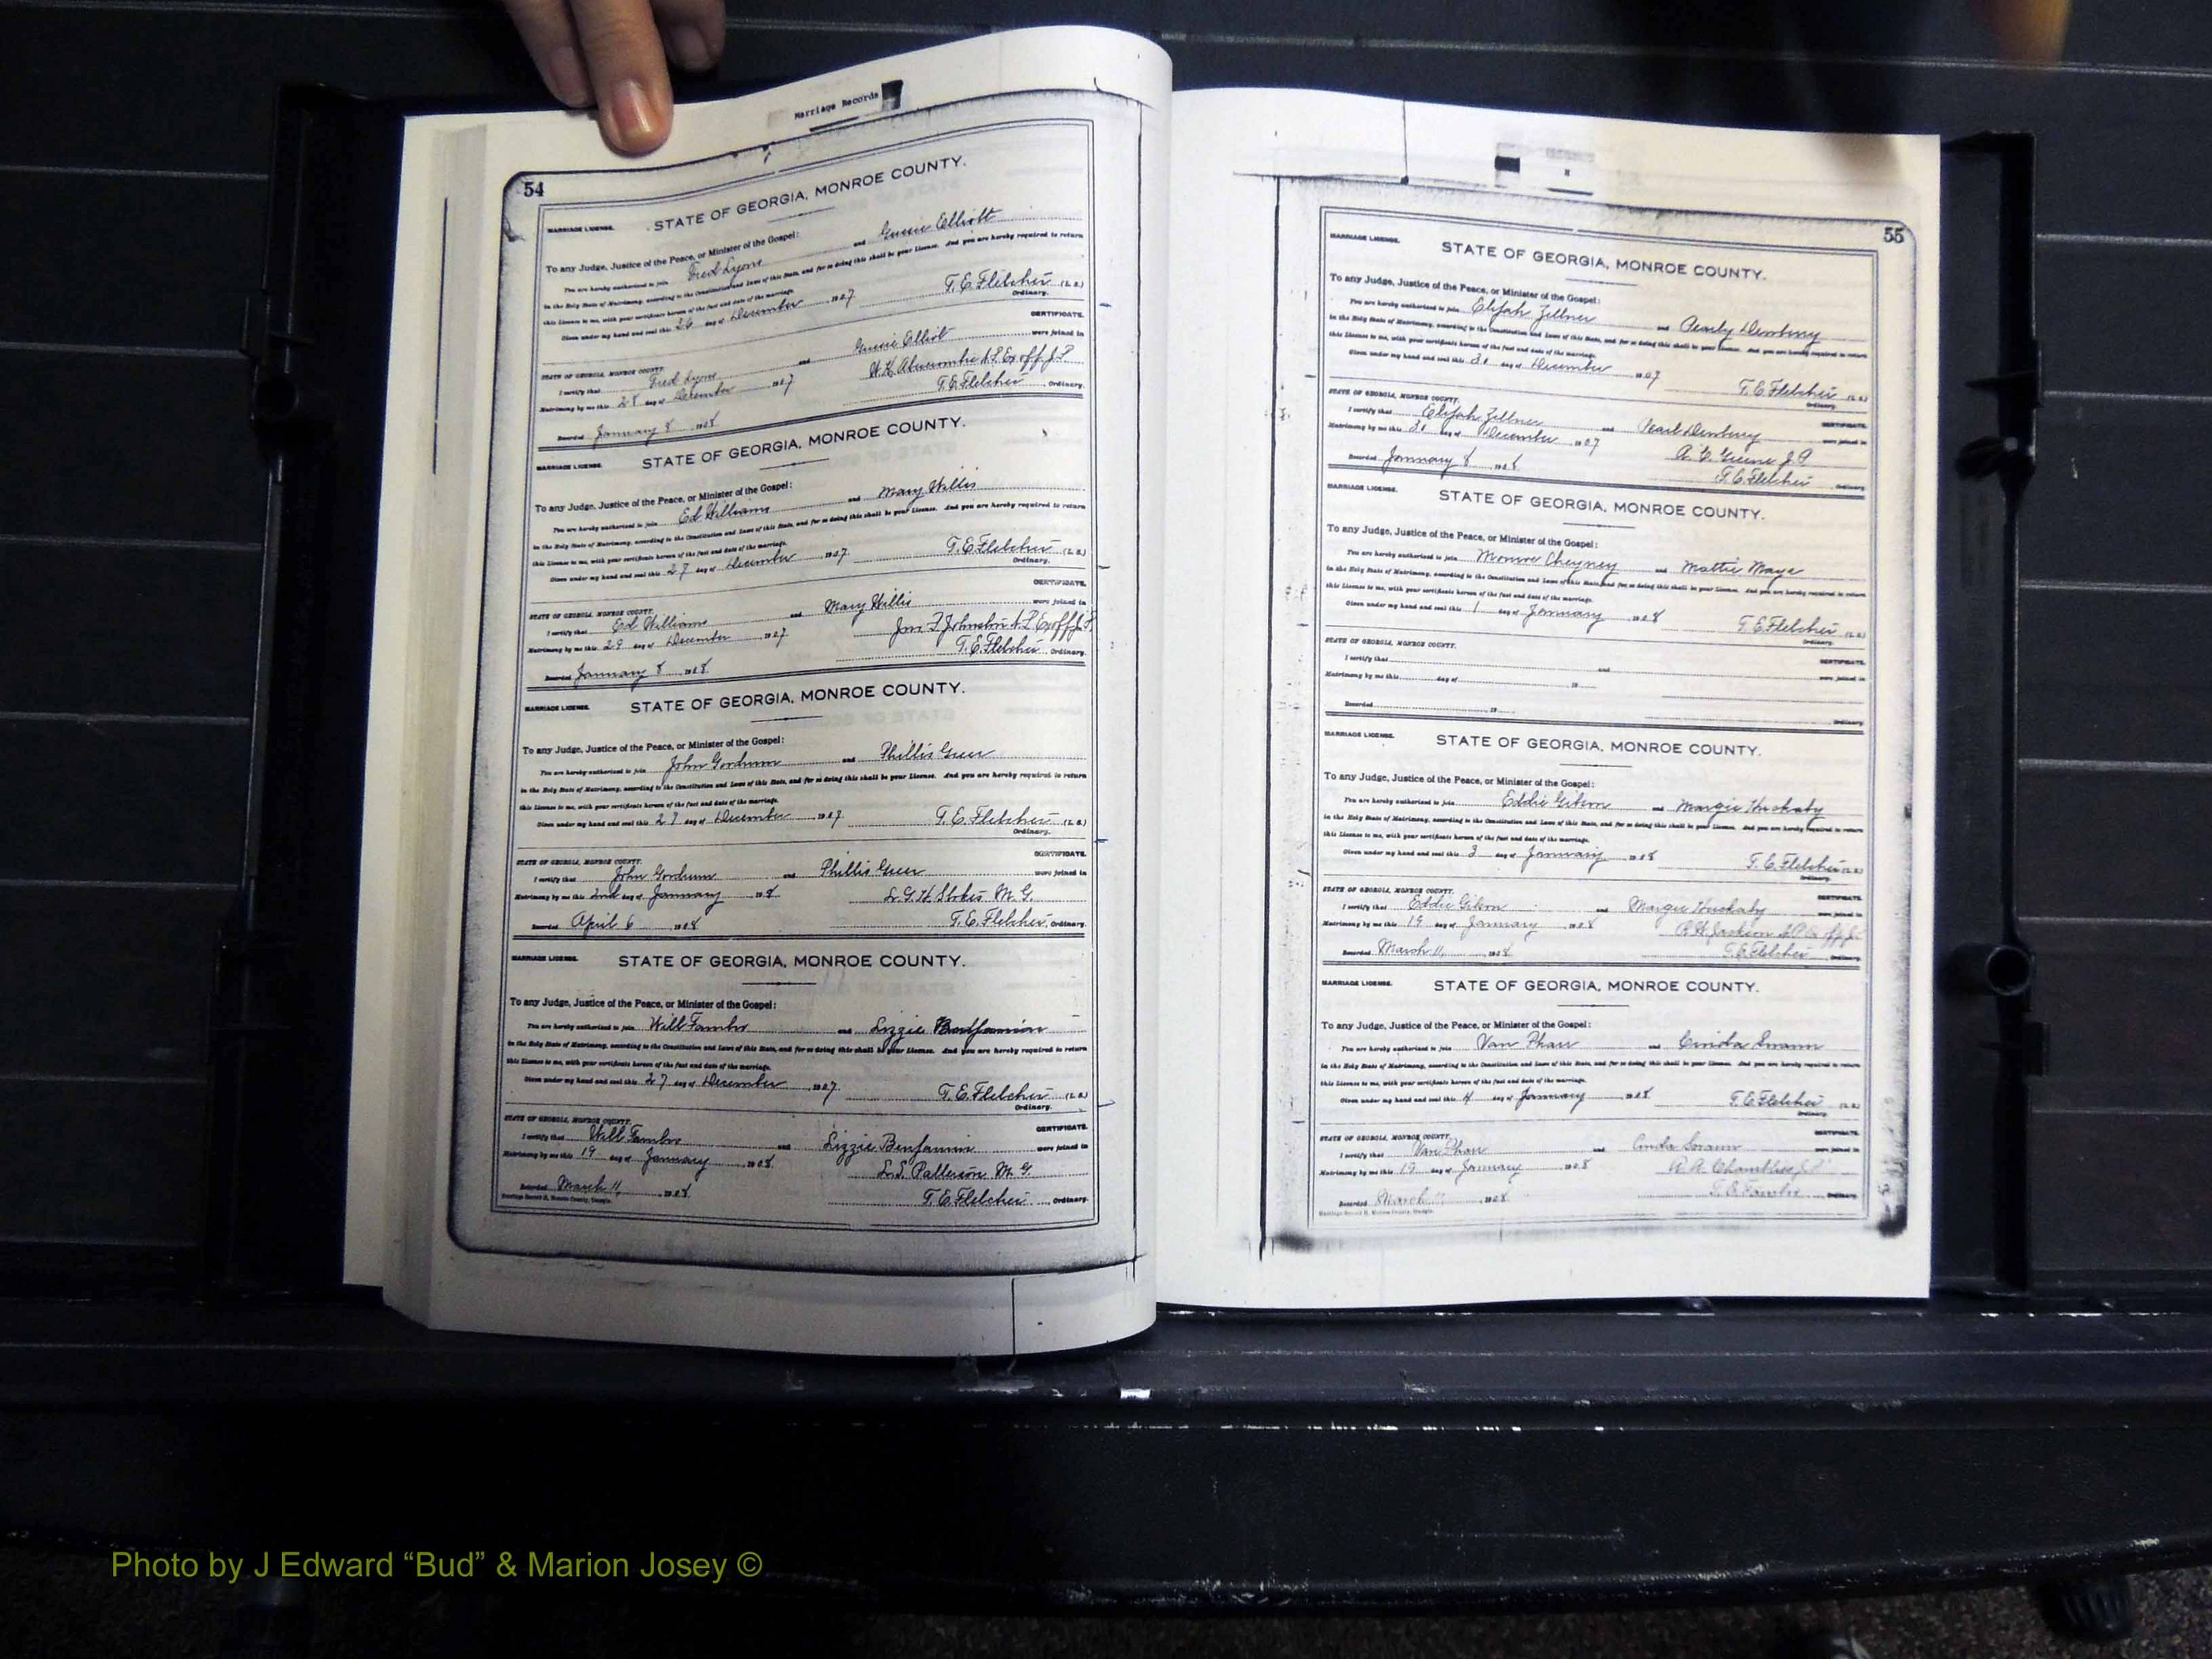 Marriage Records
54
STATE OF GEORGIA, MONROE COUNTY.
MARRIAGE LICENSE.
To any Judge, Justice of the Peace, or Minister of the Gospel:
You are hereby authorized to join Fred Lyons and Gussie Elliott
in the Holy State of Matrimony, according to the Constitution and Laws of this State, and for so doing this shall be your License. And you are hereby required to return
this License to me, with your certificate hereon of the fact and date of the marriage.
Given under my hand and seal this 26 day of December 1907 T. E. Fletcher (L. S.)
Ordinary.
CERTIFICATE.
STATE OF GEORGIA, MONROE COUNTY.
I certify that Fred Lyons and Gussie Elliot were joined in
Matrimony by me this 28 day of December 1907 Ex off J. P.
Recorded January 8 1908 T. E. Fletcher Ordinary.
MARRIAGE LICENSE. STATE OF GEORGIA, MONROE COUNTY.
To any Judge, Justice of the Peace, or Minister of the Gospel:
You are hereby authorized to join Ed Williams and Mary Willis
in the Holy State of Matrimony, according to the Constitution and Laws of this State, and for so doing this shall be your License. And you are hereby required to return
this License to me, with your certificate hereon of the fact and date of the marriage.
Given under my hand and seal this 27 day of December 1907 T. E. Fletcher (L. S.)
Ordinary.
CERTIFICATE.
STATE OF GEORGIA, MONROE COUNTY.
I certify that Ed Williams and Mary Willis were joined in
Matrimony by me this 29 day of December 1907 Jno T Johnston N. P. Ex off J. P.
Recorded January 8 1908 T. E. Fletcher Ordinary.
MARRIAGE LICENSE. STATE OF GEORGIA, MONROE COUNTY.
To any Judge, Justice of the Peace, or Minister of the Gospel:
You are hereby authorized to join John Gordum and Phillis Greer
in the Holy State of Matrimony, according to the Constitution and Laws of this State, and for so doing this shall be your License. And you are hereby required to return
this License to me, with your certificate hereon of the fact and date of the marriage.
Given under my hand and seal this 27 day of December 1907 T. E. Fletcher (L. S.)
Ordinary.
CERTIFICATE.
STATE OF GEORGIA, MONROE COUNTY.
I certify that John Gordum and Phillis Greer were joined in
Matrimony by me this 2nd day of January 1908 L. G. H. Stokes M. G.
Recorded April 6 1908 T. E. Fletcher Ordinary.
MARRIAGE LICENSE. STATE OF GEORGIA, MONROE COUNTY.
To any Judge, Justice of the Peace, or Minister of the Gospel:
You are hereby authorized to join Will Fambro and Lizzie Benjamin
in the Holy State of Matrimony, according to the Constitution and Laws of this State, and for so doing this shall be your License. And you are hereby required to return
this License to me, with your certificate hereon of the fact and date of the marriage.
Given under my hand and seal this 27 day of December 1907 T. E. Fletcher (L. S.)
Ordinary.
CERTIFICATE.
STATE OF GEORGIA, MONROE COUNTY.
I certify that Will Fambro and Lizzie Benjamin were joined in
Matrimony by me this 19 day of January 1908 L. S. Patterson M. G.
Recorded March 11, 1908 T. E. Fletcher Ordinary.
55
MARRIAGE LICENSE. STATE OF GEORGIA, MONROE COUNTY.
To any Judge, Justice of the Peace, or Minister of the Gospel:
You are hereby authorized to join Elijah Zellner and Pearly Dewberry
in the Holy State of Matrimony, according to the Constitution and Laws of this State, and for so doing this shall be your License. And you are hereby required to return
this License to me, with your certificate hereon of the fact and date of the marriage.
Given under my hand and seal this day of December 1907 T. E. Fletcher (L. S.)
Ordinary.
STATE OF GEORGIA, MONROE COUNTY. CERTIFICATE.
I certify that Elijah Zellner and Pearl Dewberry were joined in
Matrimony by me this day of December 1907 Greene J. P.
Recorded January 8 1908 T. E. Fletcher Ordinary.
MARRIAGE LICENSE. STATE OF GEORGIA, MONROE COUNTY.
To any Judge, Justice of the Peace, or Minister of the Gospel:
You are hereby authorized to join Monroe Cheyney and Mattie Maye
in the Holy State of Matrimony, according to the Constitution and Laws of this State, and for so doing this shall be your License. And you are hereby required to return
this License to me, with your certificate hereon of the fact and date of the marriage.
Given under my hand and seal this 1 day of January 1908 T. E. Fletcher (L. S.)
Ordinary.
STATE OF GEORGIA, MONROE COUNTY. CERTIFICATE.
I certify that and were joined in
Matrimony by me this day of 19
Recorded 19 Ordinary.
MARRIAGE LICENSE. STATE OF GEORGIA, MONROE COUNTY.
To any Judge, Justice of the Peace, or Minister of the Gospel:
You are hereby authorized to join Eddie Gibson and Margie Huckaby
in the Holy State of Matrimony, according to the Constitution and Laws of this State, and for so doing this shall be your License. And you are hereby required to return
this License to me, with your certificate hereon of the fact and date of the marriage.
Given under my hand and seal this 3 day of January 1908 T. E. Fletcher (L. S.)
Ordinary.
STATE OF GEORGIA, MONROE COUNTY. CERTIFICATE.
I certify that Eddie Gibson and Margie Huckaby were joined in
Matrimony by me this 19 day of January 1908 Jackson N. P. Ex off J. P.
Recorded March 11, 1908 T. E. Fletcher Ordinary.
MARRIAGE LICENSE. STATE OF GEORGIA, MONROE COUNTY.
To any Judge, Justice of the Peace, or Minister of the Gospel:
You are hereby authorized to join Van Pharr and Cinda Swann
in the Holy State of Matrimony, according to the Constitution and Laws of this State, and for so doing this shall be your License. And you are hereby required to return
this License to me, with your certificate hereon of the fact and date of the marriage.
Given under my hand and seal this 4 day of January 1908 T. E. Fletcher (L. S.)
Ordinary.
STATE OF GEORGIA, MONROE COUNTY. CERTIFICATE.
I certify that Van Pharr and Cinda Swann were joined in
Matrimony by me this 19 day of January 1908 A. A. Chambliss J. P.
Recorded March 11 1908 Ordinary.
Photo by J Edward “Bud” & Marion Josey ©